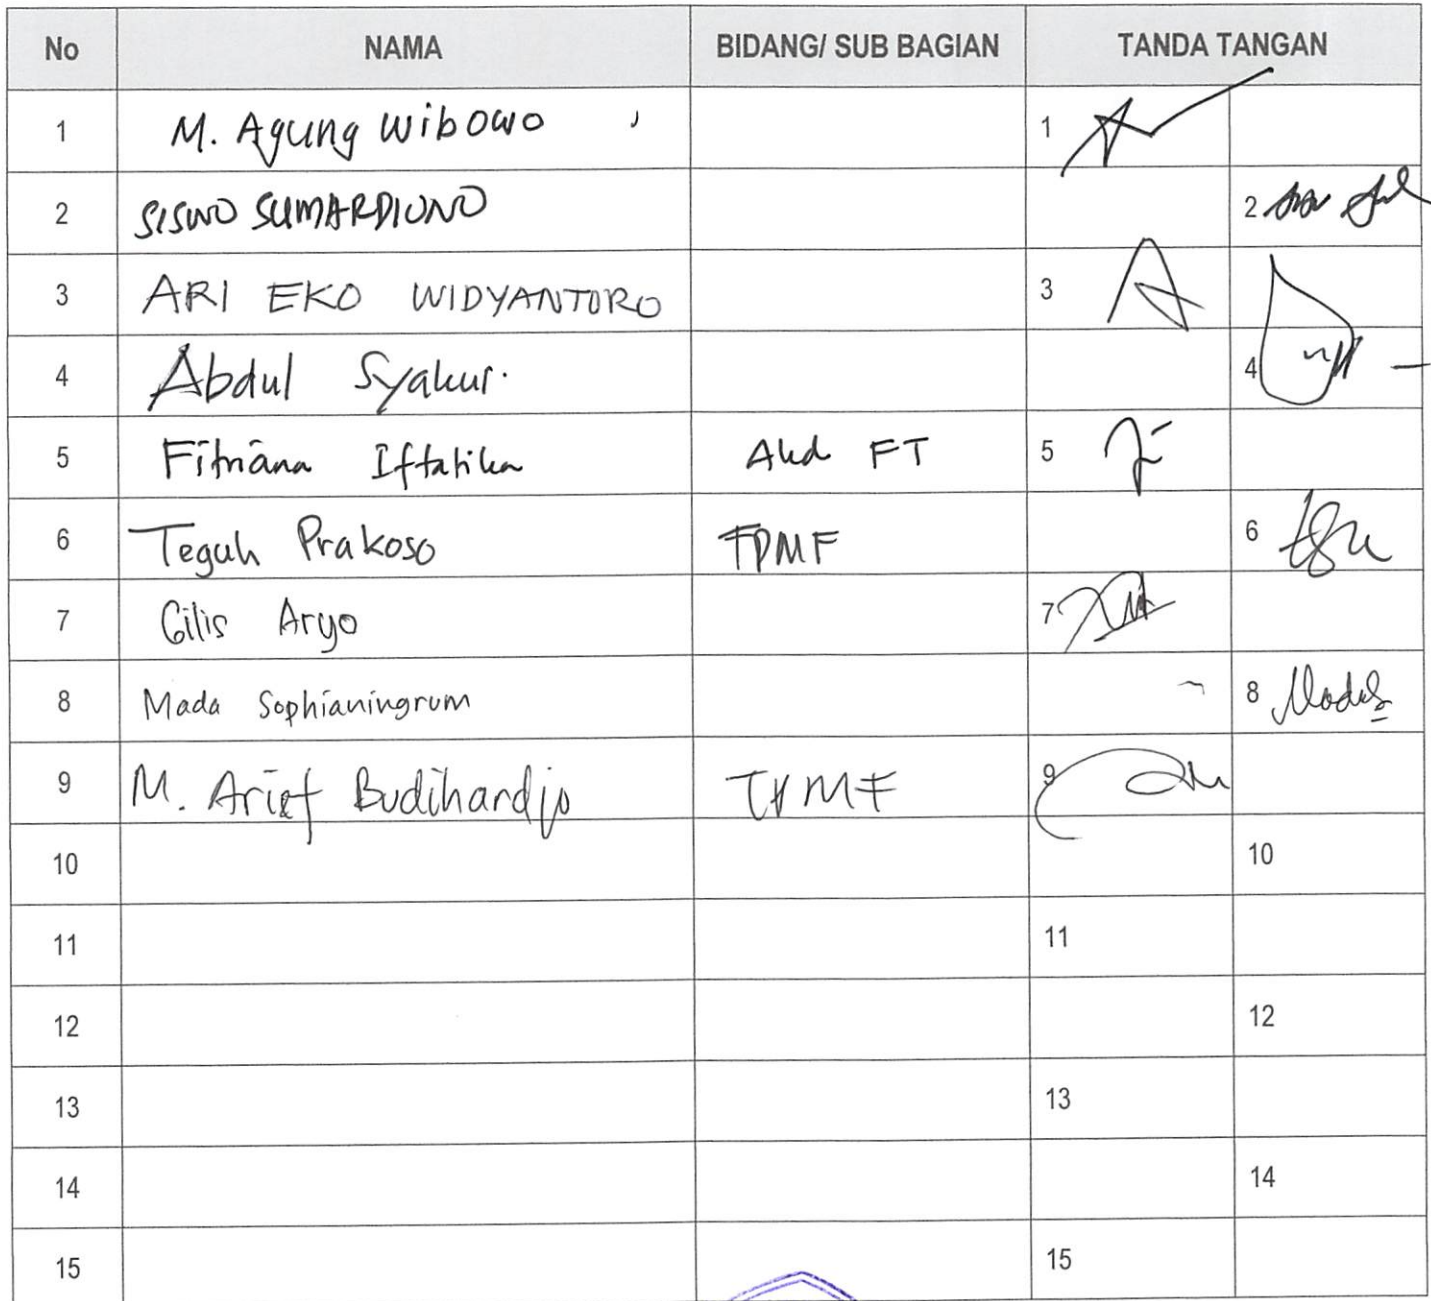 No NAMA BIDANG/ SUB BAGIAN TANDA TANGAN
1 M. Agung Wibowo 1
2 SISWO SUMARDIONO 2
3 ARI EKO WIDYANTORO 3
4 Abdul Syakur. 4
5 Fitriana Iftatika Akd FT 5
6 Teguh Prakoso TPMF 6
7 Gilis Aryo 7
8 Mada Sophianingrum 8
9 M. Arief Budihardjo TPMF 9
10 10
11 11
12 12
13 13
14 14
15 15